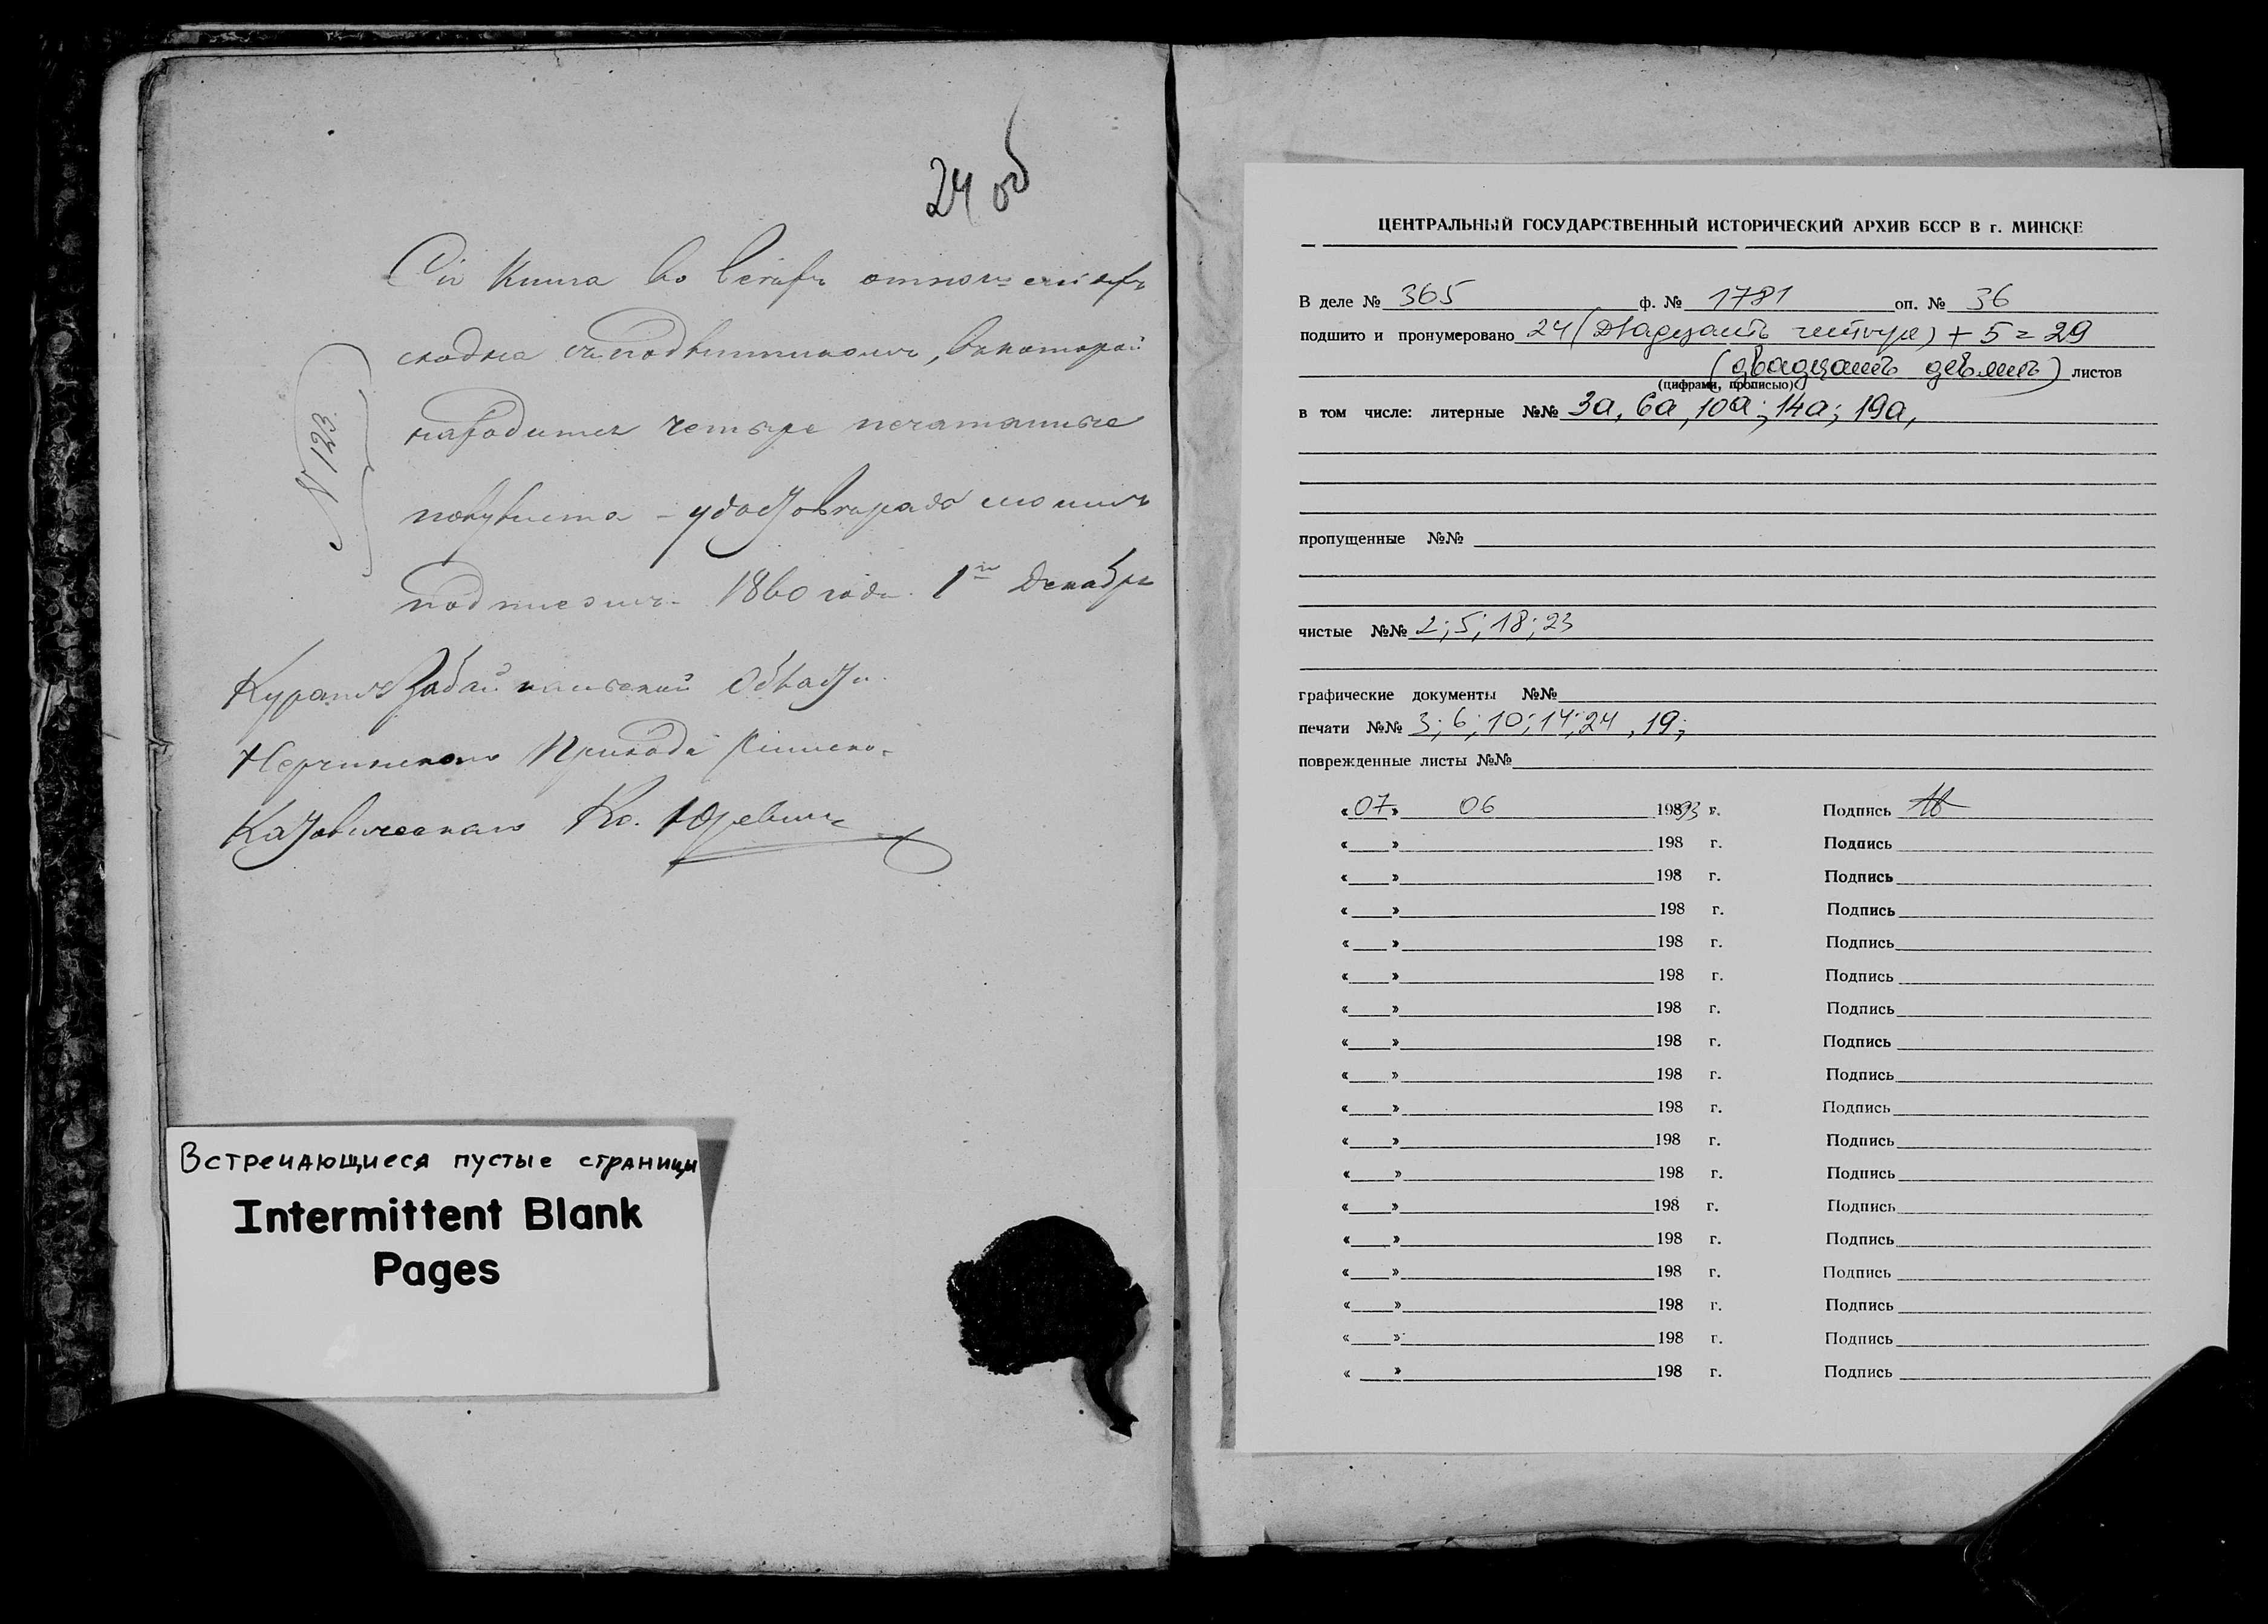 24 об
Сія Книга во всѣхъ отношеніяхъ
сходна съ подлинникомъ, въ которой
находится четыре печатанные
полулиста – удостовѣряю моимъ
подписомъ 1860 года 1го Декабря
N 123
Куратъ Забайкальской Области
Нерчинскаго Прихода Римско-
Католическаго Кс. Юревичъ
Встречающиеся пустые страницы
Intermittent Blank
Pages
ЦЕНТРАЛЬНЫЙ ГОСУДАРСТВЕННЫЙ ИСТОРИЧЕСКИЙ АРХИВ БССР В г. МИНСКЕ
В деле № 365 ф. № 1781 оп. № 36
подшито и пронумеровано 24 (двадцать четыре) + 5 = 29
(двадцать девять) листов
(цифрами, прописью)
в том числе: литерные №№ 3а, 6а, 10а; 14а; 19а,
пропущенные №№
чистые №№ 2; 5; 18; 23
графические документы №№
печати №№ 3; 6; 10; 14; 24, 19;
поврежденные листы №№
«07» 06 19893 г. Подпись
« » 198 г. Подпись
« » 198 г. Подпись
« » 198 г. Подпись
« » 198 г. Подпись
« » 198 г. Подпись
« » 198 г. Подпись
« » 198 г. Подпись
« » 198 г. Подпись
« » 198 г. Подпись
« » 198 г. Подпись
« » 198 г. Подпись
« » 198 г. Подпись
« » 198 г. Подпись
« » 198 г. Подпись
« » 198 г. Подпись
« » 198 г. Подпись
« » 198 г. Подпись